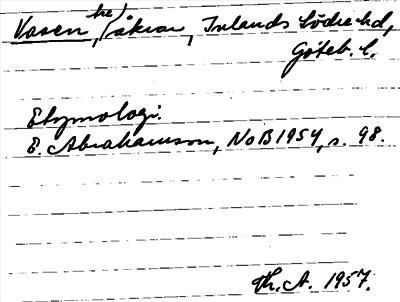 Vasen, (he) åkrar, Inlands Södre hd,
Göteb. l.
Etymologi.
E. Abrahamson, NoB 1954, s. 98.
Th. A. 1957.